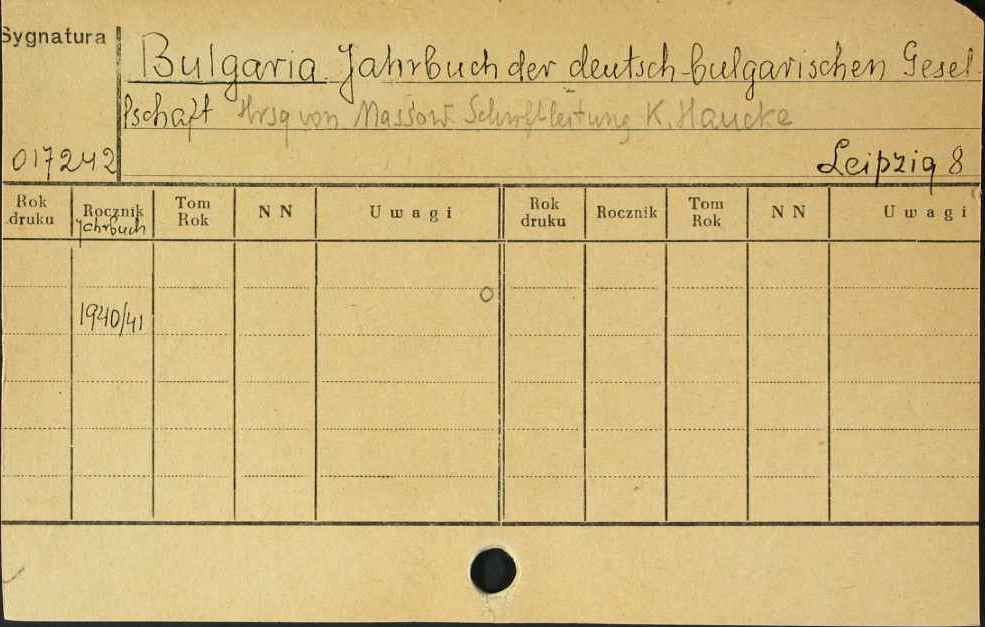 Sygnatura
Bulgaria Jahrbuch der deutsch-bulgarischen Gesel-
lschaft Hrsg von Massow. Schriftleitung K. Haucke
017242
Leipzig 8
Rok druku Rocznik Jahrbuch Tom Rok NN Uwagi Rok druku Rocznik Tom Rok NN Uwagi
1940/41